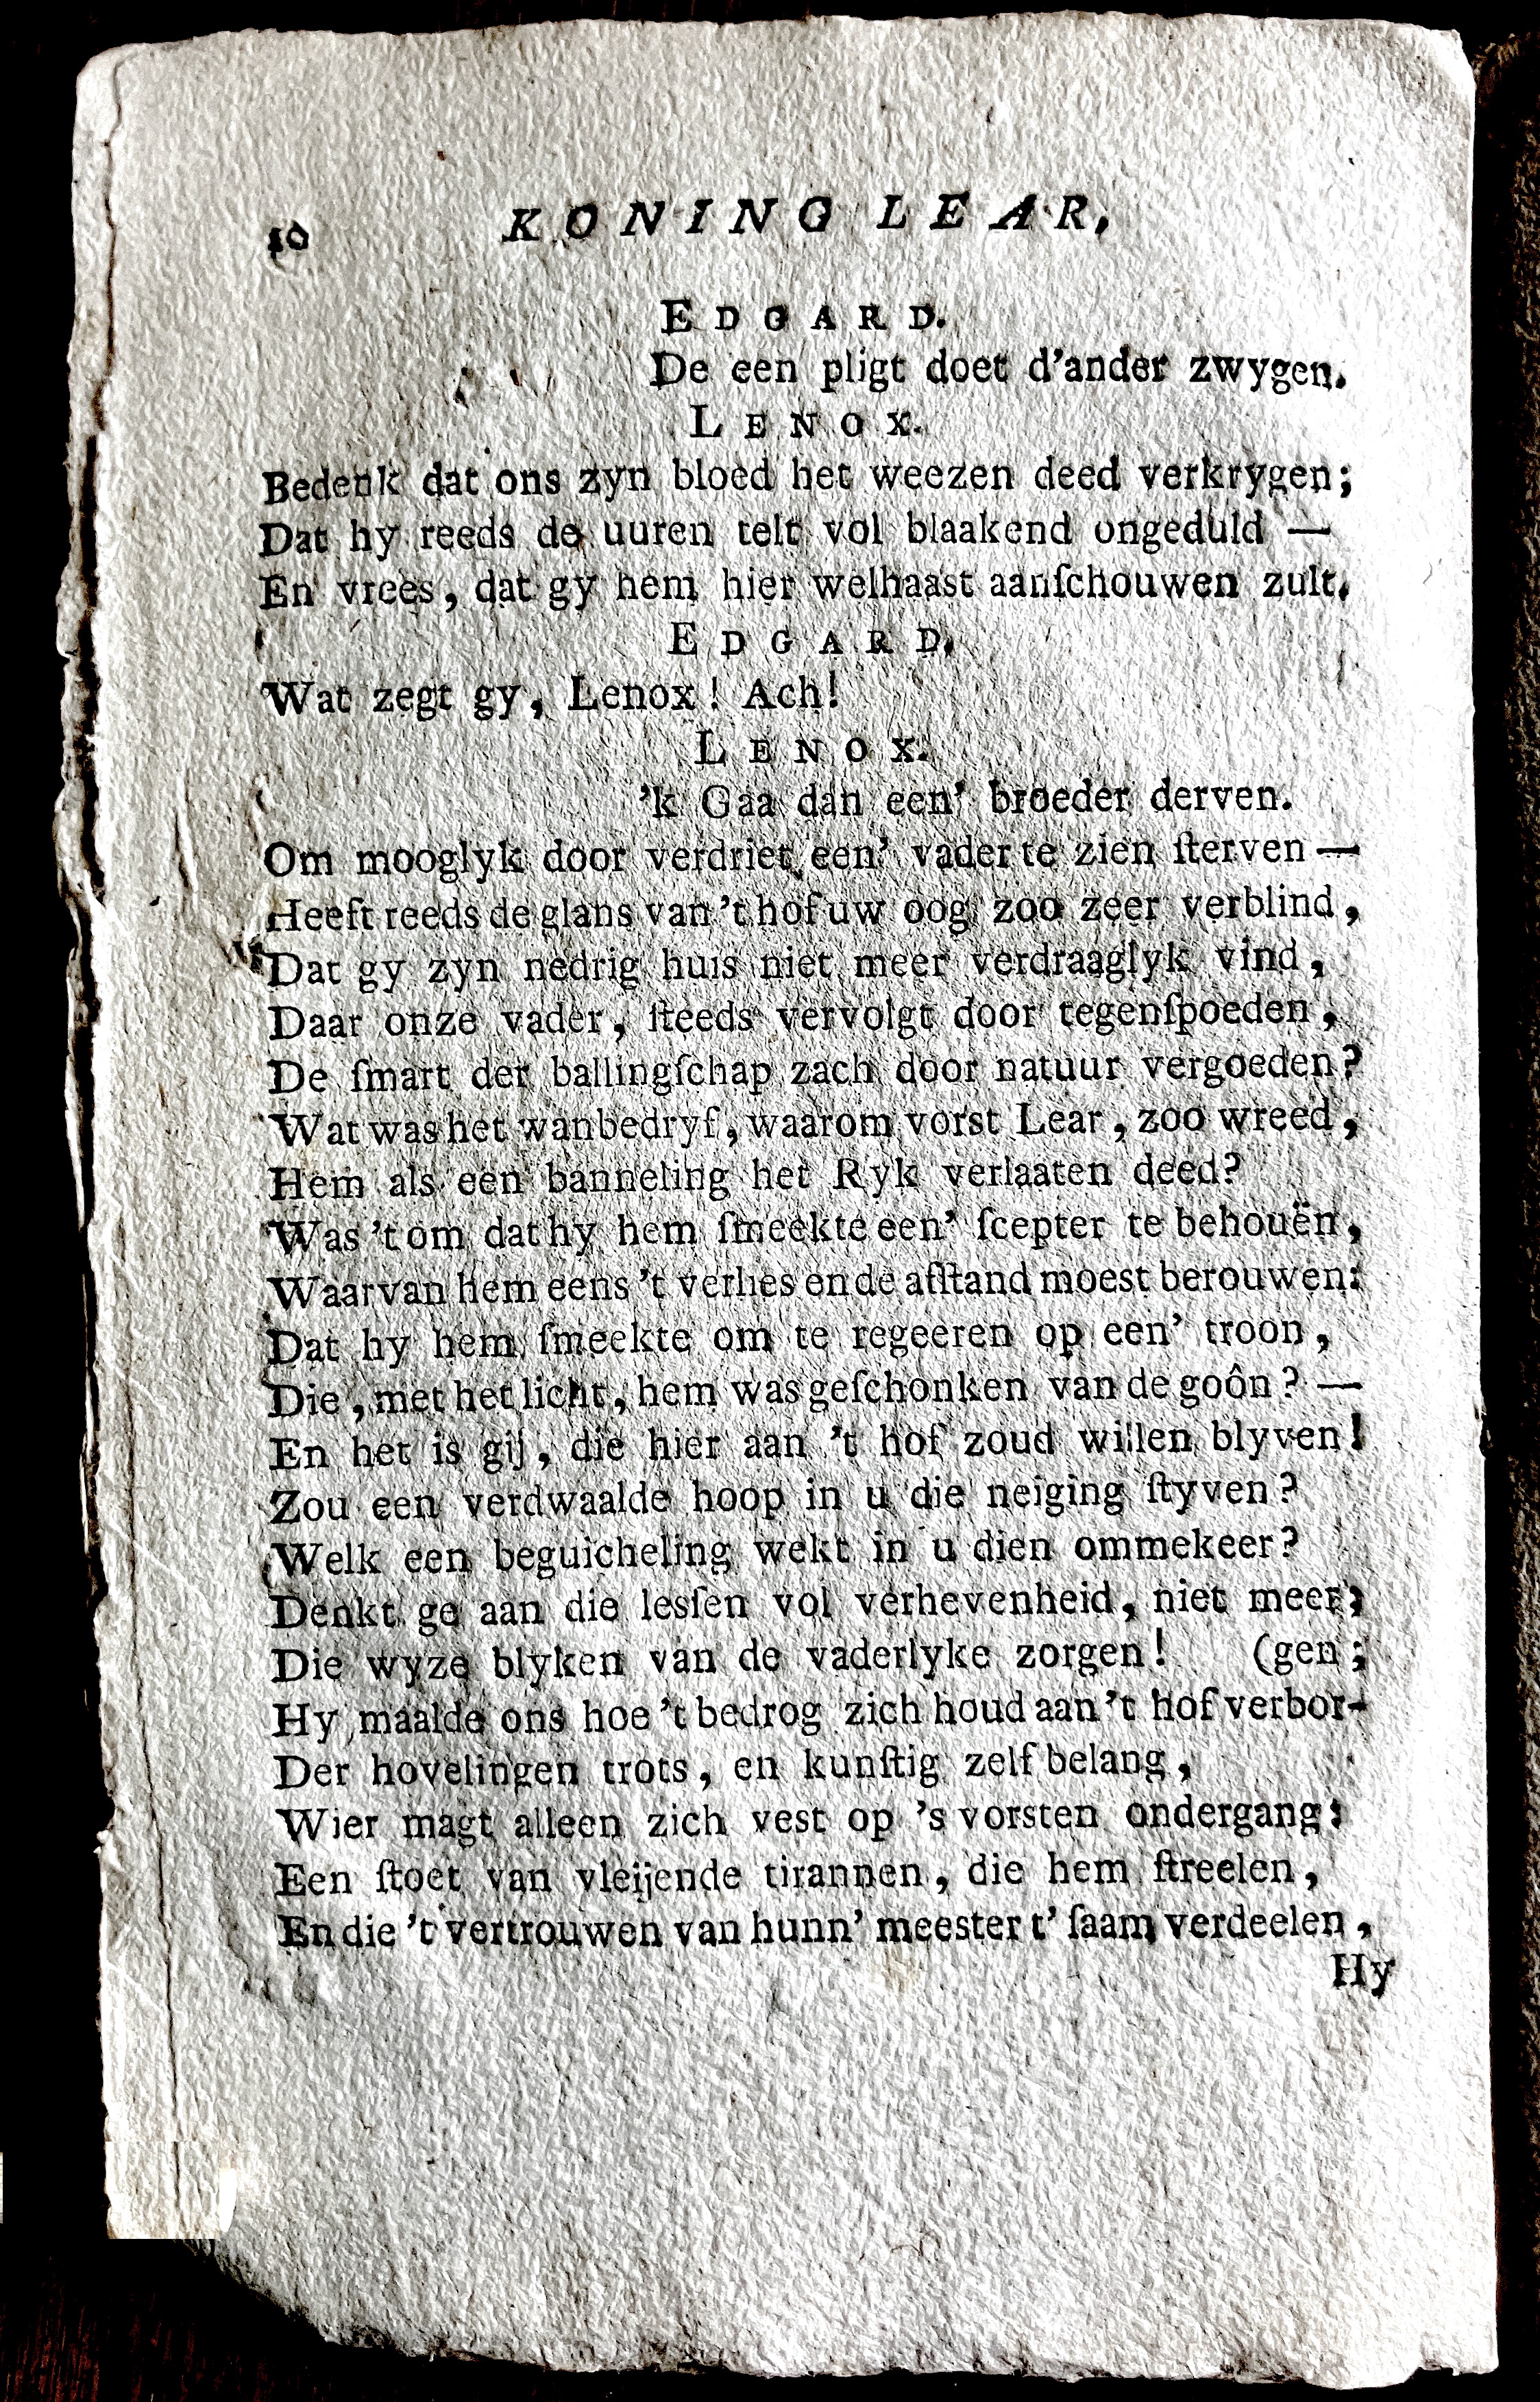 10 KONING LEAR,
EDGARD.
De een pligt doet d'ander zwygen.
LENOX.
Bedenk dat ons zyn bloed het weezen deed verkrygen;
Dat hy reeds de uuren telt vol blaakend ongeduld —
En vrees, dat gy hem hier welhaast aanſchouwen zult.
EDGARD.
Wat zegt gy, Lenox! Ach!
LENOX.
'k Gaa dan een' broeder derven.
Om mooglyk door verdriet een' vader te zien ſterven —
Heeft reeds de glans van 't hof uw oog zoo zeer verblind,
Dat gy zyn nedrig huis niet meer verdraaglyk vind,
Daar onze vader, ſteeds vervolgt door tegenſpoeden,
De ſmart der ballingſchap zach door natuur vergoeden?
Wat was het wanbedryf, waarom vorst Lear, zoo wreed,
Hem als een banneling het Ryk verlaaten deed?
Was 't om dat hy hem ſmeekte een' ſcepter te behouën,
Waarvan hem eens 't verlies en de afſtand moest berouwen:
Dat hy hem ſmeekte om te regeeren op een' troon,
Die, met het licht, hem was geſchonken van de goôn? —
En het is gij, die hier aan 't hof zoud willen blyven!
Zou een verdwaalde hoop in u die neiging ſtyven?
Welk een beguicheling wekt in u dien ommekeer?
Denkt ge aan die lesſen vol verhevenheid, niet meer;
Die wyze blyken van de vaderlyke zorgen! (gen;
Hy maalde ons hoe 't bedrog zich houd aan 't hof verbor-
Der hovelingen trots, en kunſtig zelf belang,
Wier magt alleen zich vest op 's vorsten ondergang:
Een ſtoet van vleijende tirannen, die hem ſtreelen,
En die 't vertrouwen van hunn' meester t' ſaam verdeelen,
Hy